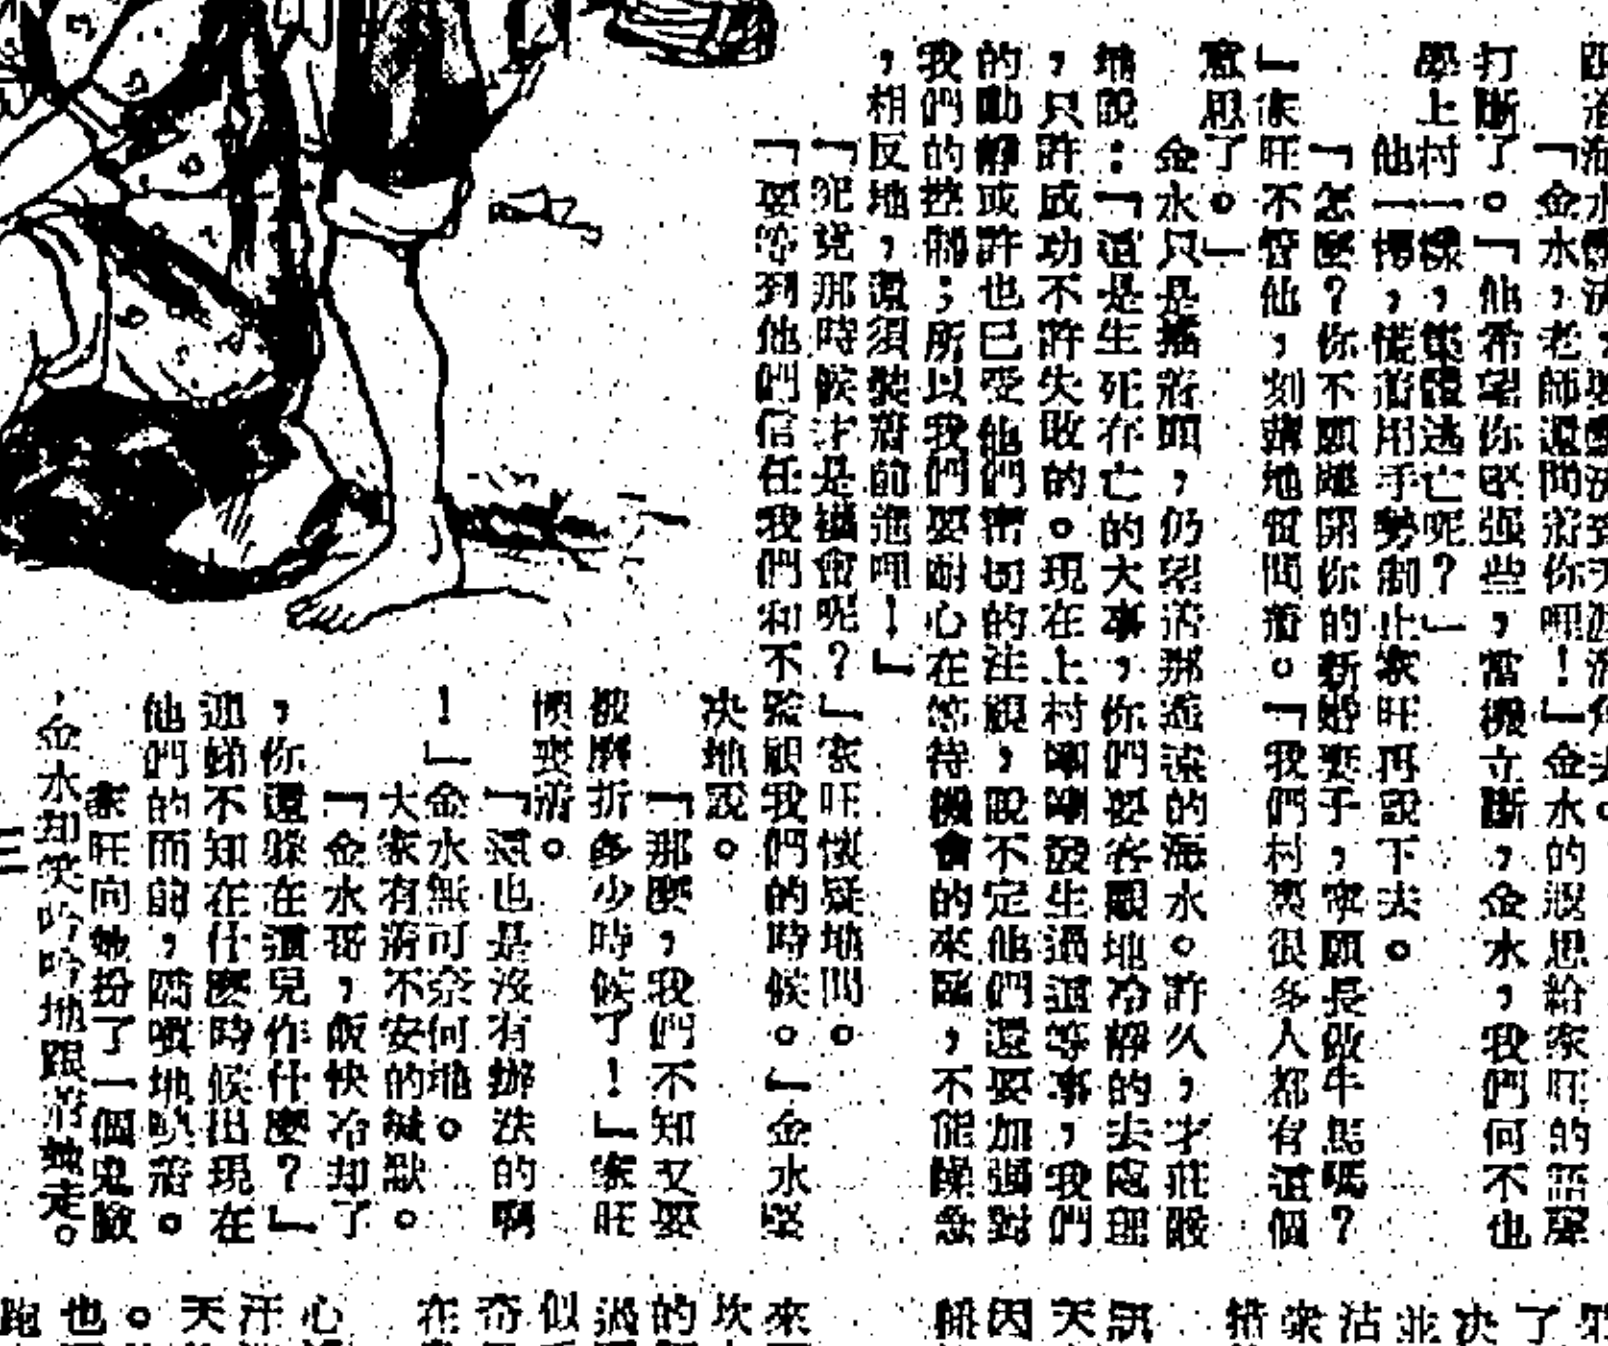 「金水，老師還問着你哩！」金水的沉思給家旺的語聲
打斷了。「他希望你堅强些，當機立斷，金水，我們何不也
學上村一樣，集體逃亡呢？」
他一揚，慌着用手勢制止家旺再說下去。
「怎麼？你不願離開你的新婚妻子，寧願長做牛馬嗎？
」家旺不管他，刻薄地質問着。「我們村裏很多人都有這個
意思了。」
金水只是搖着頭，仍望着那遙遠的海水。許久，才莊嚴
地說：「這是生死存亡的大事，你們要客觀地冷靜的去處理
，只許成功不許失敗的。現在上村剛剛發生過這等事，我們
的動靜或許也已受他們密切的注視，說不定他們還要加强對
我們的控制；所以我們要耐心在等待機會的來臨，不能躁急
，相反地，還須裝着前進哩！」
「究竟那時候才是機會呢？」家旺懷疑地問。
「要等到他們信任我們和不監顧我們的時候。」金水堅
决地說。
「那麼，我們不知又要
被磨折多少時候了！」家旺
懊喪着。
「這也是沒有辦法的啊
！」金水無可奈何地。
大家有着不安的緘默。
「金水哥，飯快冷却了
，你還躲在這兒作什麼？」
迎娣不知在什麼時候出現在
他們的面前，嬌嗔地喚着。
家旺向她扮了一個鬼臉
，金水却笑吟吟地跟着她走。
三
了
决
並
沾
衆
訊
天
因
係
來
坎
的
過
似
奇
在
心
汗
天
。
也
跑